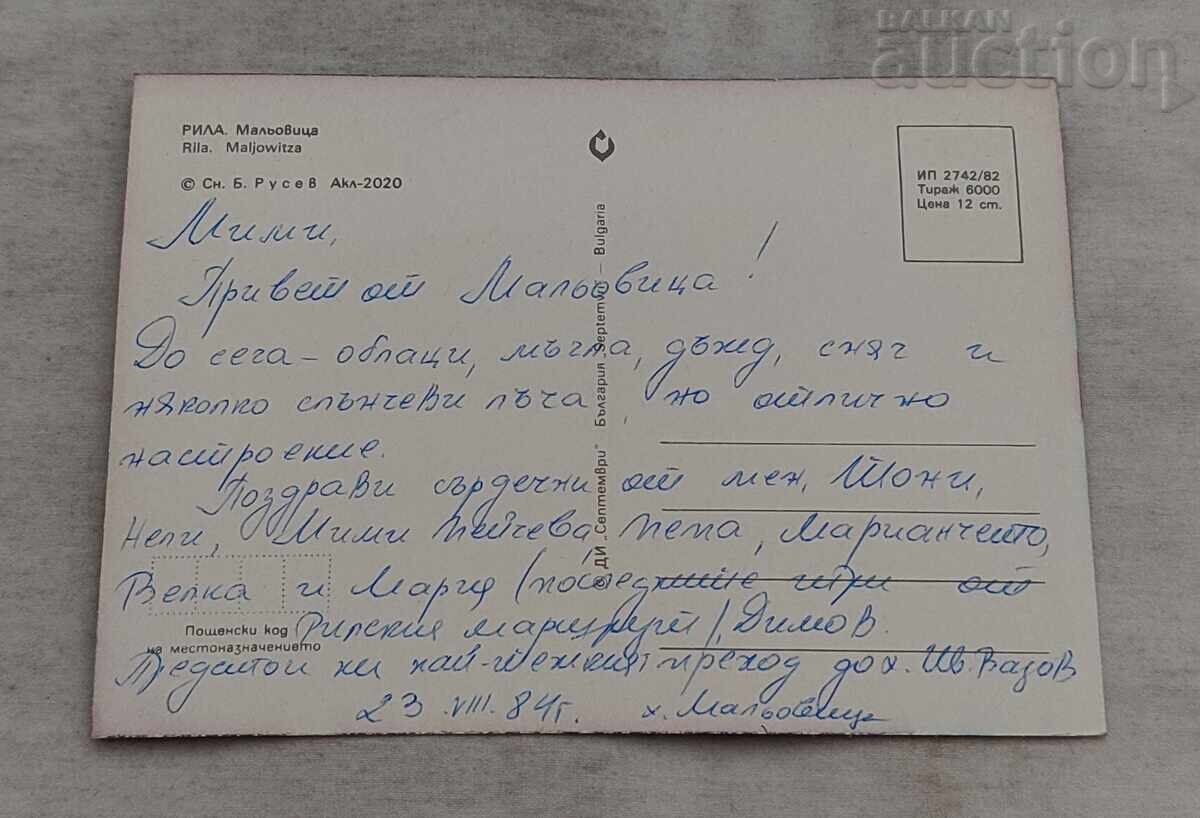 BALKAN
auction
РИЛА. Мальовица
Rila. Maljowitza
© Сн. Б. Русев Акл-2020
ИП 2742/82
Тираж 6000
Цена 12 ст.
ДИ „Септември" България „Septemvri" — Bulgaria
Мими,
Привет от Мальовица!
До сега – облаци, мъгла, дъжд, сняг и
няколко слънчеви лъча, но отлично
настроение.
Поздрави сърдечни от мен, Тони,
Нели, Мими Пейчева, Пепа, Марианчето,
Велка и Мария /последните три от
Рилския маршрут/, Димов.
Предстои ни най-тежкият преход до х. Ив. Вазов
23.VIII.84 г. х. Мальовица
Пощенски код
на местоназначението